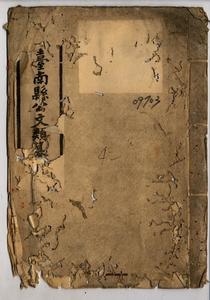 臺南縣公文類纂
09703